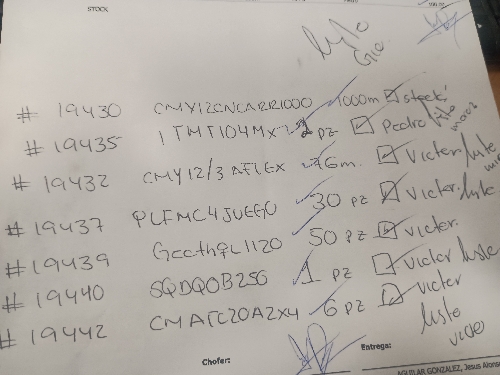 STOCK
listo
Gio
# 19430 CMY12CNCARR1000 1000m stock
# 19435 1TMT104MX 2 pz Pedro listo
# 19432 CMY12/3 AFLEX 16m. Victor. listo
# 19437 PLFMC4JUEGO 30 pz Victor. listo
# 19439 50 PZ Victor.
# 19440 SQDQOB250 1 pz Victor liste
# 19442 6 pz Victor
listo
Chofer:
Entrega:
AGUILAR GONZALEZ, Jesus Alonso